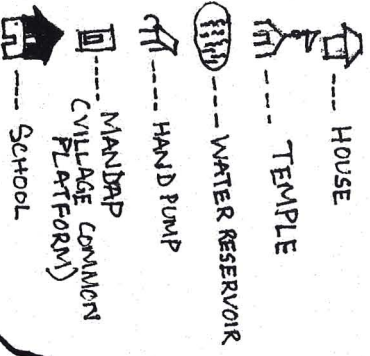 --- HOUSE
--- TEMPLE
--- WATER RESERVOIR
---- HAND PUMP
---- MANDAP
(VILLAGE COMMON
PLATFORM)
--- SCHOOL